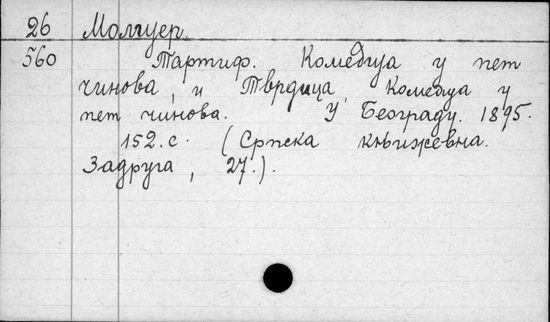 26 Молијер.
560 Тартиф. Комедија у пет
чинова, и Тврдица, Комедија у
пет чинова. У Београду. 1895.
152. с. (Српска књижевна.
Задруга, 27.).